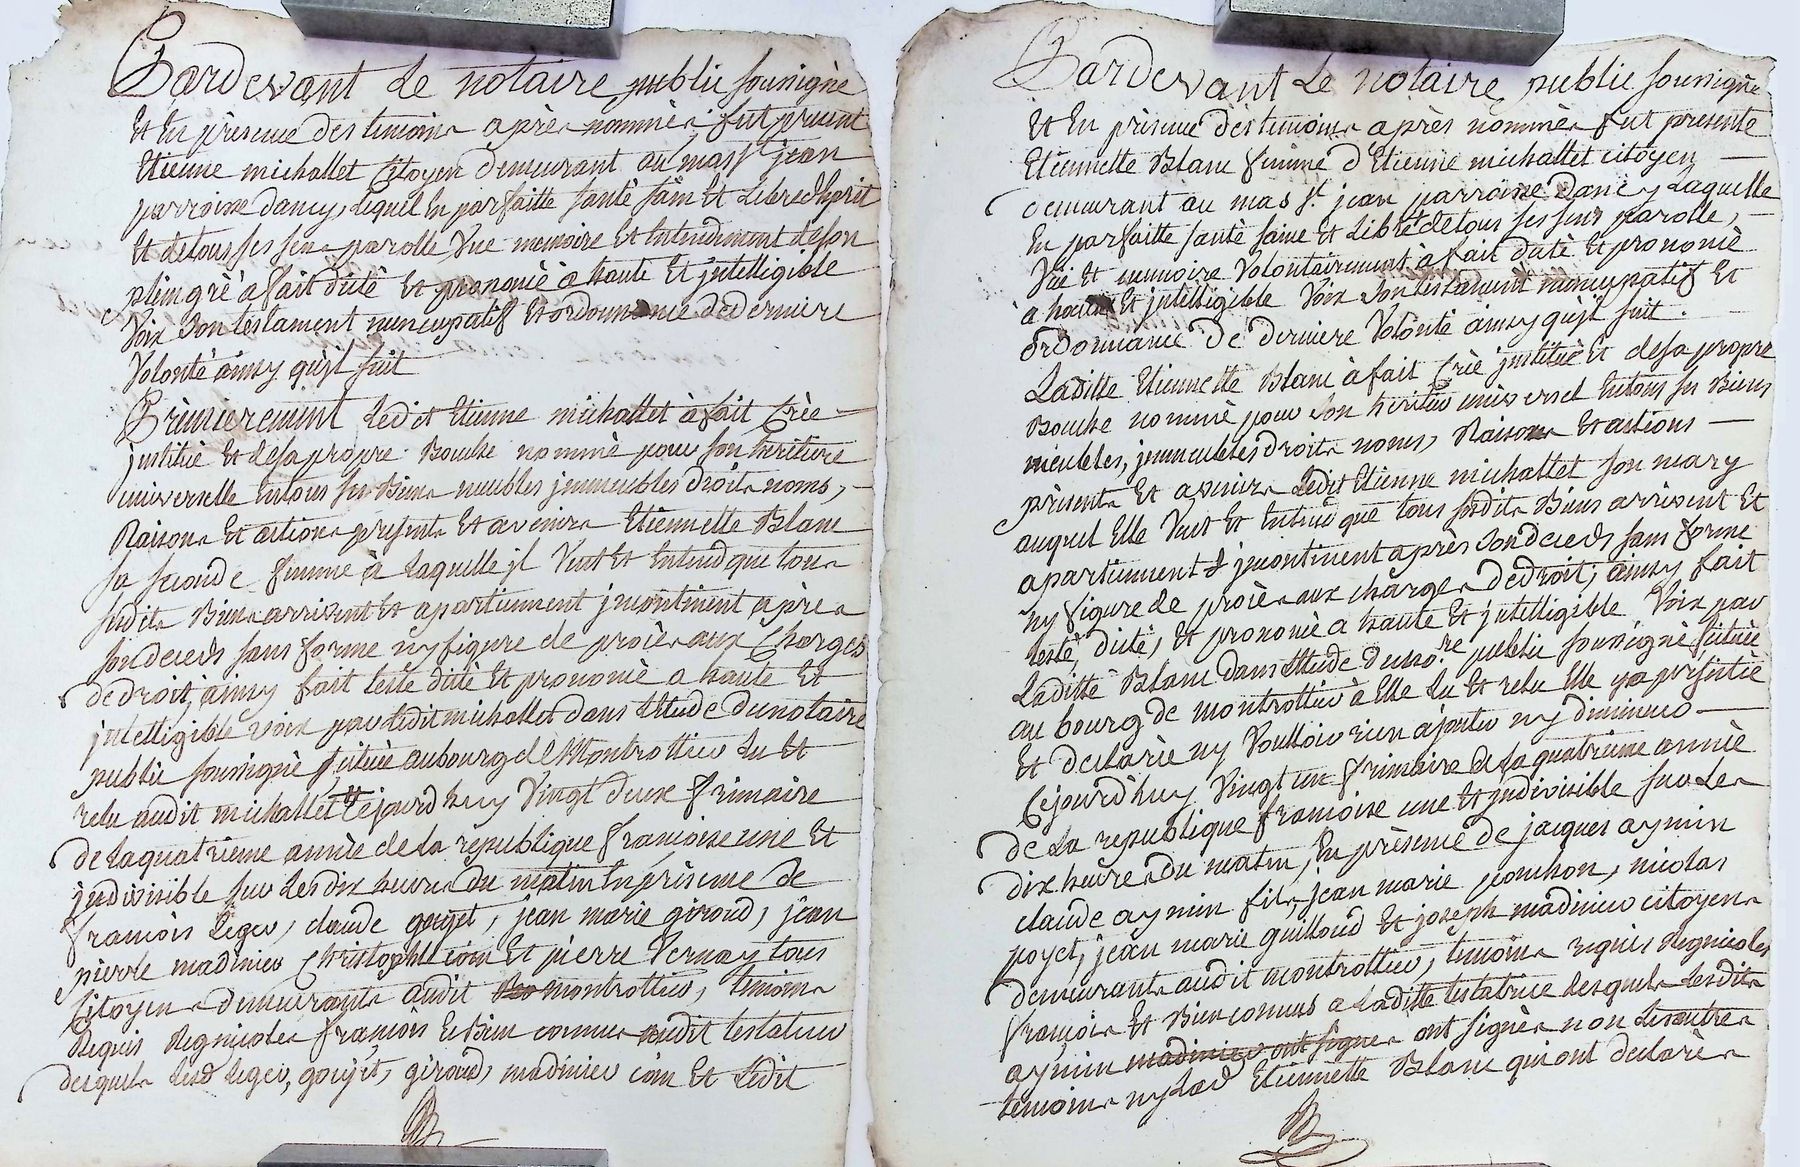 Pardevant Le notaire public soussignè
Et En prèsence des temoins après nommès fut present
Etienne michallet Citoyen demeurant au mas st jean
parroisse dancy, Lequel En parfaitte santè sain Et Libre desprit
Et de tous ses sens parolle, Vue memoire Et Entendement de son
plein grè à fait dictè Et prononcè à haute Et jntelligible
Voix Son testament nuncupatif Et ordonnance de derniere
Volontè ainsy qu'jl suit
Prèmierement Ledict Etienne michallet à fait Crèe
jnstituè Et de sa propre Bouche nommè pour son heritiere
universelle En tous ses Biens meubles jmmeubles droits noms,
Raisons Et actions presents Et avenirs Etiennette Blanc
sa seconde femme à Laquelle jl Veut Et Entend que tous
sesdits Biens arrivent Et apartiennent jncontinent après
son deceds sans forme ny figure de procès aux Charges
de droit, ainsy fait testè dictè Et prononcè a haute Et
jntelligible voix par Ledit michallet dans L'Etude du notaire
public soussignè scituèe au bourg de Montrottier Lu Et
relu audit michallet Cejourd'huy Vingt deux frimaire
de La quatrieme annèe de La rèpublique françoise une Et
jndivisible sur Les dix heures du matin En prèsence de
françois Leger, claude gouget, jean marie giroud, jean
pierre madinier Christophle coin Et pierre Vernay tous
Citoyens demeurants audit montrottier, temoins
Requis Regnicoles françois Et Bien connus audit testateur
desquels Lesd Leger, gouget, giroud, madinier coin Et Ledit
Pardevant Le notaire public soussignè
Et En prèsence des temoins après nommès fut presente
Etiennette Blanc femme d'Etienne michallet citoyen
demeurant au mas st jean parroisse dancy Laquelle
En parfaitte santè saine Et Libre de tous ses sens parolle,
Vue Et memoire Volontairement à fait dictè Et prononcè
à haute Et jntelligible Voix Son testament nuncupatif Et
ordonnance de derniere Volontè ainsy qu'jl suit.
Laditte Etiennette Blanc à fait Crèe jnstituè Et de sa propre
Bouche nommè pour Son heritier universel En tous ses Biens
meubles, jmmeubles droits noms, Raisons Et actions
prèsents Et avenirs Ledit Etienne michallet son mary
auquel Elle Veut Et Entend que tous sesdits Biens arrivent Et
apartiennent jncontinent après Son deceds sans forme
ny figure de procès aux charges de droit, ainsy fait
testè, dictè, Et prononcè a haute Et jntelligible Voix par
Laditte Blanc dans L'Etude du no.re public soussignè scituèe
au bourg de montrottier à Elle Lu Et relu Elle y a persistèe
Et declarèe ny Vouloir rien ajouter ny diminuer
Cejourd'huy Vingt un frimaire de La quatrieme annèe
de La republique françoise une Et jndivisible sur Les
dix heures du matin, En prèsence de jacques aymin
claude aymin fils, jean marie ponchon, nicolas
poyet, jean marie guilloud Et joseph madinier citoyens
demeurants audit montrottier, temoins requis regnicoles
françois Et Bien connus a Laditte testatrice desquels Lesdits
aymin madinier ont signes ont signès non Les autres
temoins ny Lad Etiennette Blanc qui ont declarès